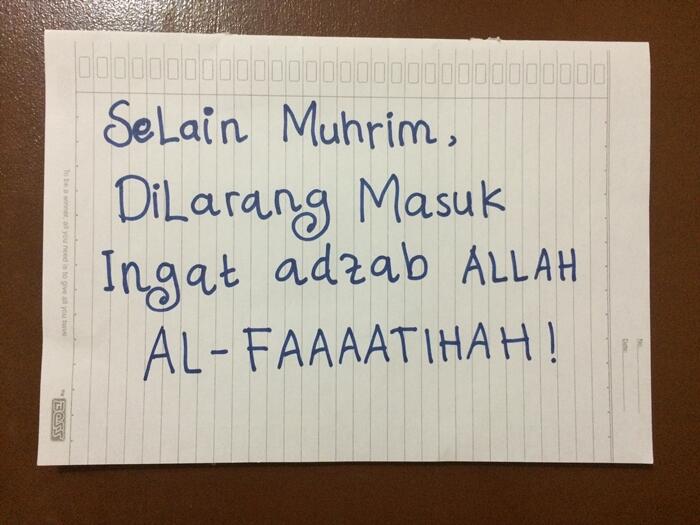 Selain Muhrim,
Dilarang Masuk
Ingat adzab ALLAH
AL-FAAAATIHAH!
To be a winner, all you need is to give all you have
No.
Date.